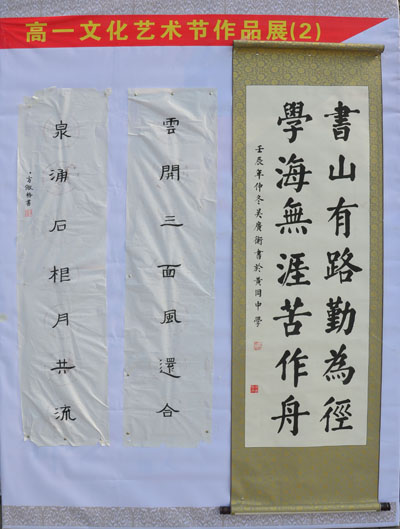 高一文化艺术节作品展(2)
書山有路勤為徑
學海無涯苦作舟
壬辰年仲冬吴廣書於中學
雲開三面風還合
泉浦石根月共流
書